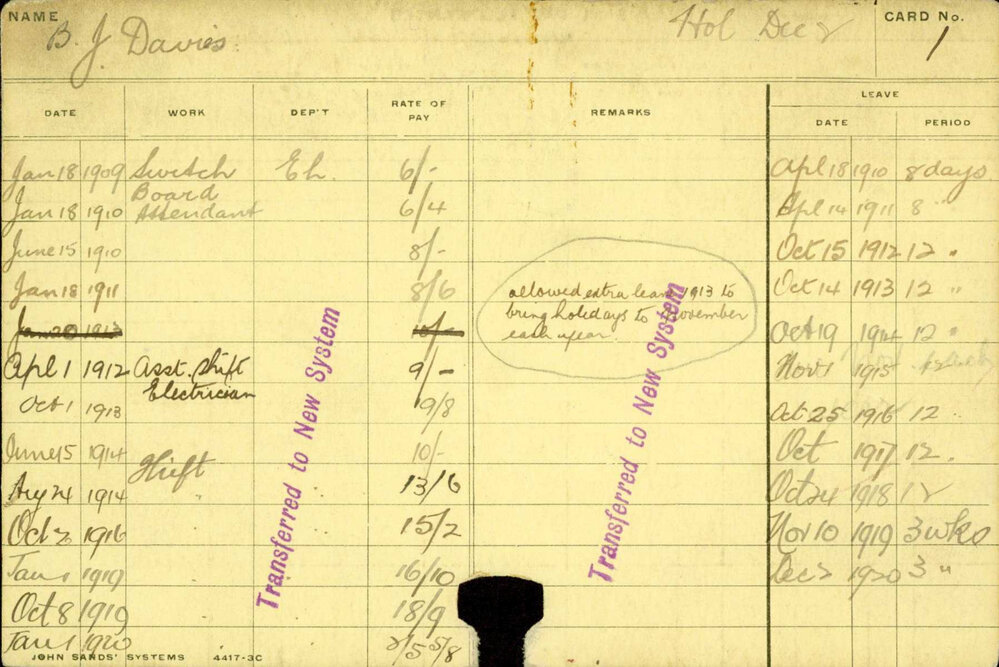 NAME B. J. Davies Hol Dec 2 CARD No. 1
LEAVE
DATE WORK DEP'T RATE OF PAY REMARKS DATE PERIOD
Jan 18 1909 Switch El. 6/- Apl 18 1910 8 days
Board
Jan 18 1910 Attendant 6/4 Apl 14 1911 8 "
June 15 1910 8/- Oct 15 1912 12 "
Jan 18 1911 8/6 allowed extra leave 1913 to Oct 14 1913 12 "
bring holidays to November
Jan 20 1912 10/- each year. Oct 19 1914 12 "
Apl 1 1912 Asst. Shift 9/- Nov 1 1915
Electrician
Oct 1 1913 9/8 Oct 25 1916 12 "
June 15 1914 10/- Oct 1917 12 "
Shift
Aug 24 1914 13/6 Oct 24 1918 12
Oct 2 1916 15/2 Nov 10 1919 3 wks
Jan 1 1919 16/10 Dec 2 1920 3 "
Oct 8 1919 18/9
Jan 1 1920
Transferred to New System
Transferred to New System
JOHN SANDS' SYSTEMS 4417-3C